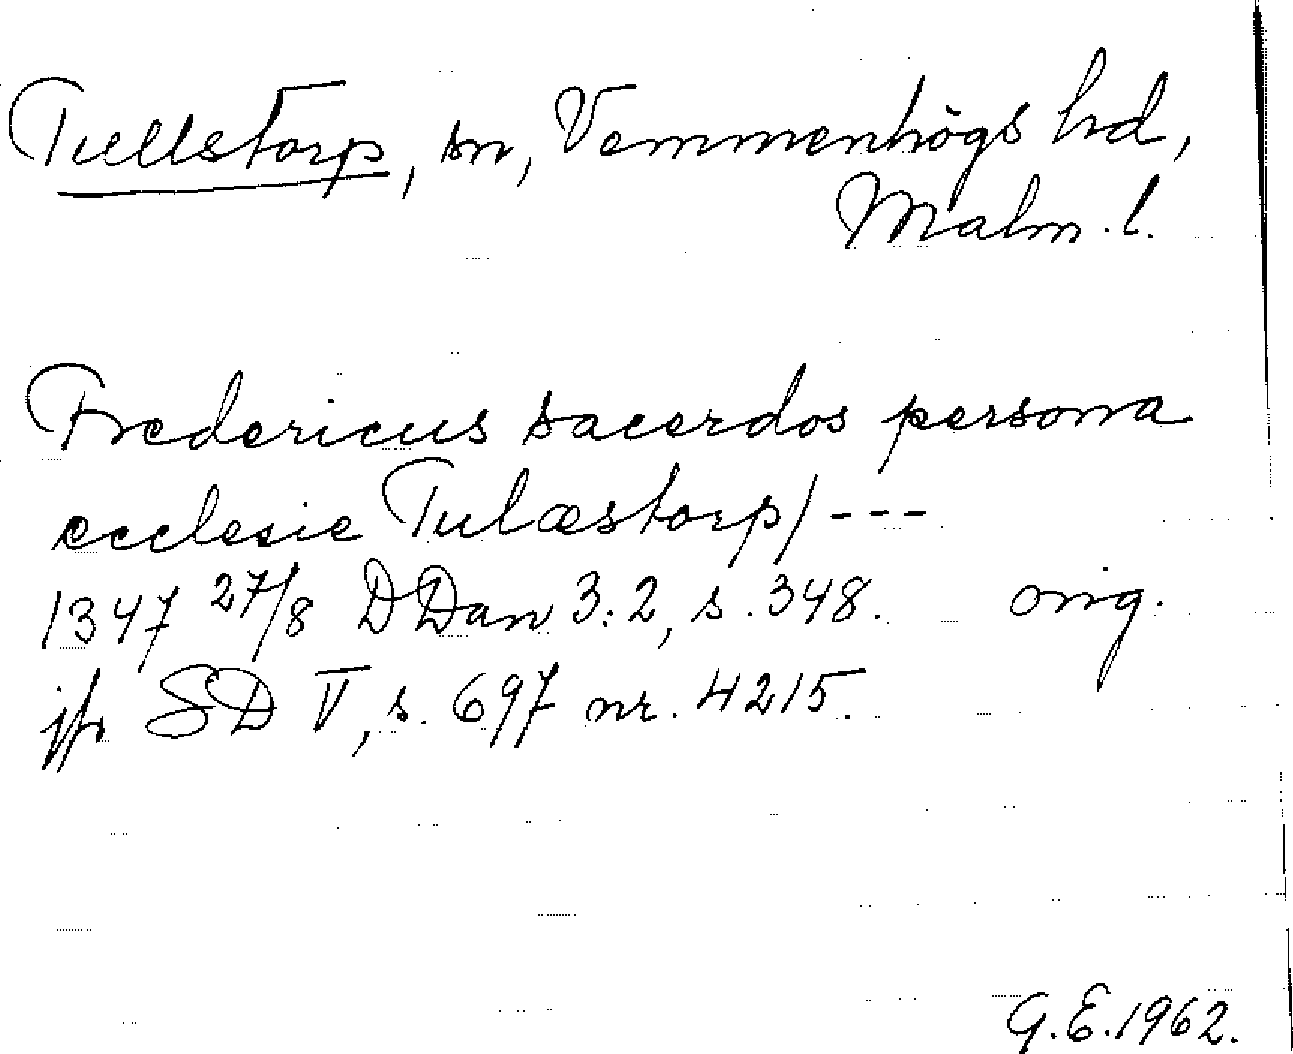 Tullstorp, sn, Vemmenhögs hd,
Malm. l.
Fredericus sacerdos persona
ecclesie Tulæstorp/ ---
1347 27/8 DDan 3:2, s. 348. orig.
jfr SD V, s. 697 nr. 4215.
G.E. 1962.